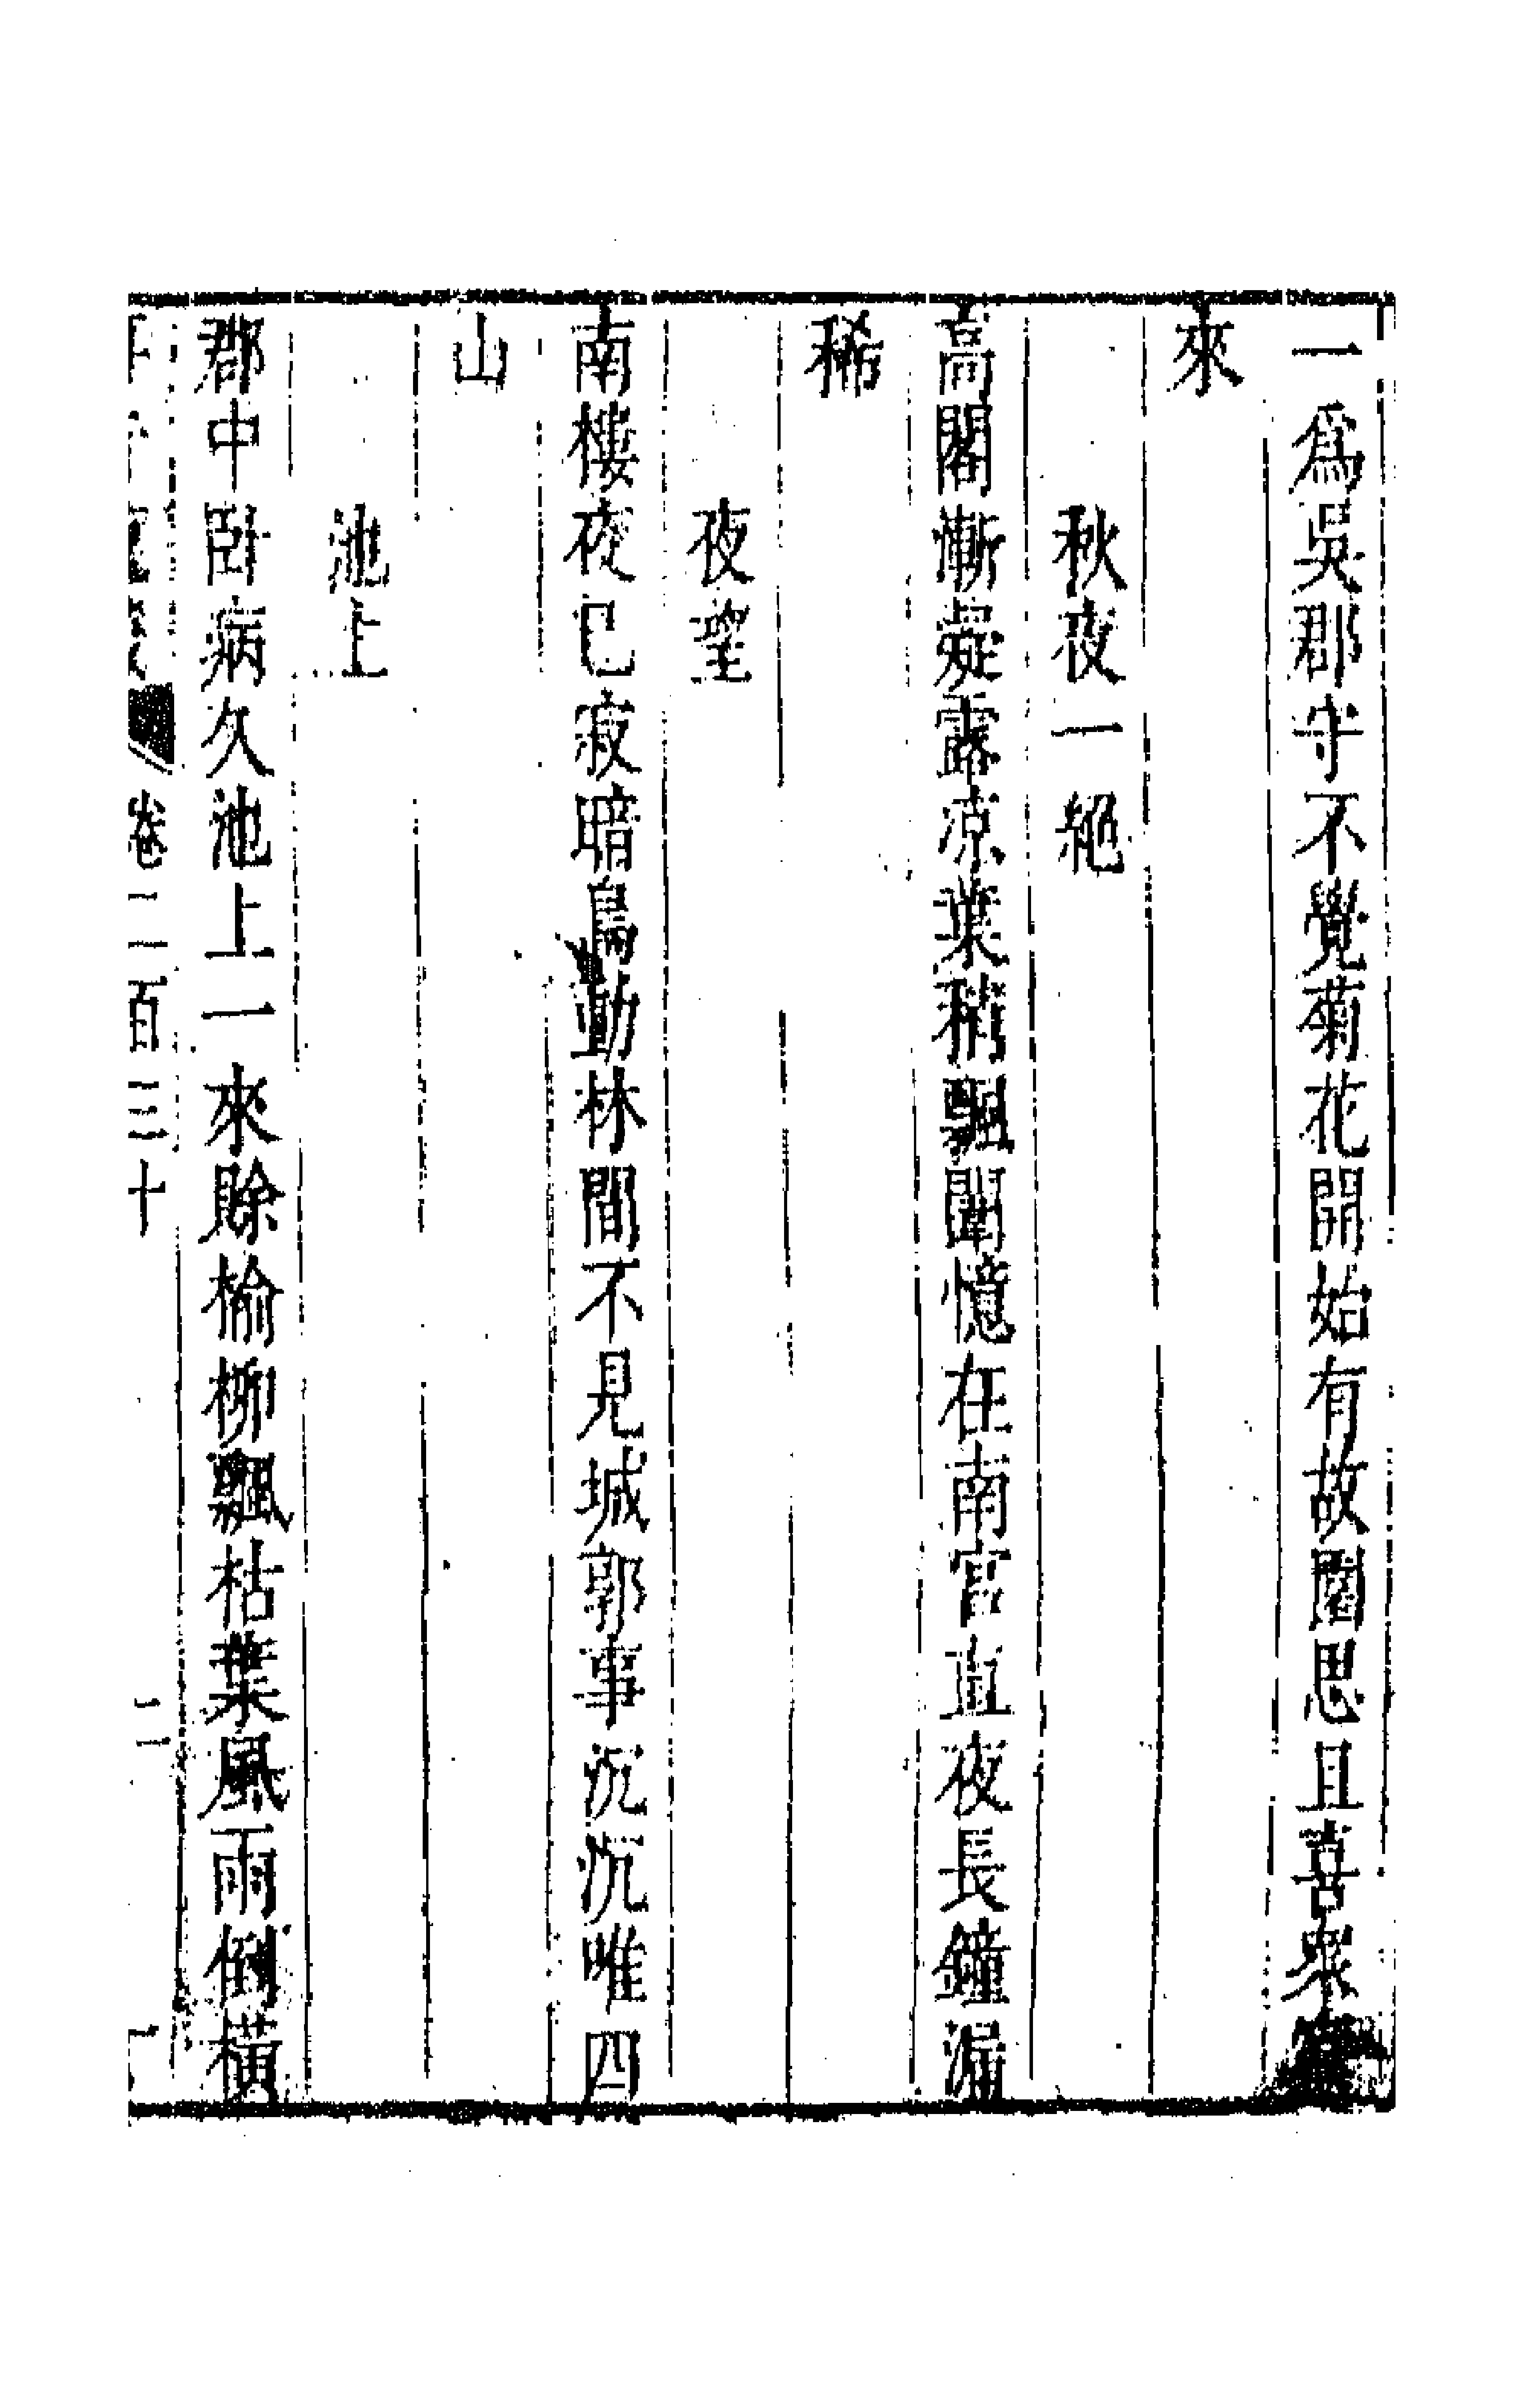 一為吳郡守不覺菊花開始有故園思且喜衆
來
秋夜一絕
高閣漸凝露凉葉稍飄闈憶在南宫直夜長鐘漏
稀
夜望
南樓夜已寂暗鳥動林間不見城郭事沉沉唯四
山
池上
郡中卧病久池上一來賖榆柳飄枯葉風雨倒橫
卷二百三十
二